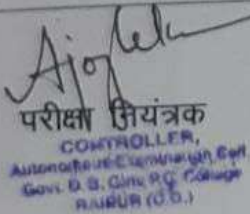 परीक्षा नियंत्रक
CONTROLLER,
Autonomous Examination Cell
Govt. D. B. Girls PG College
RAIPUR